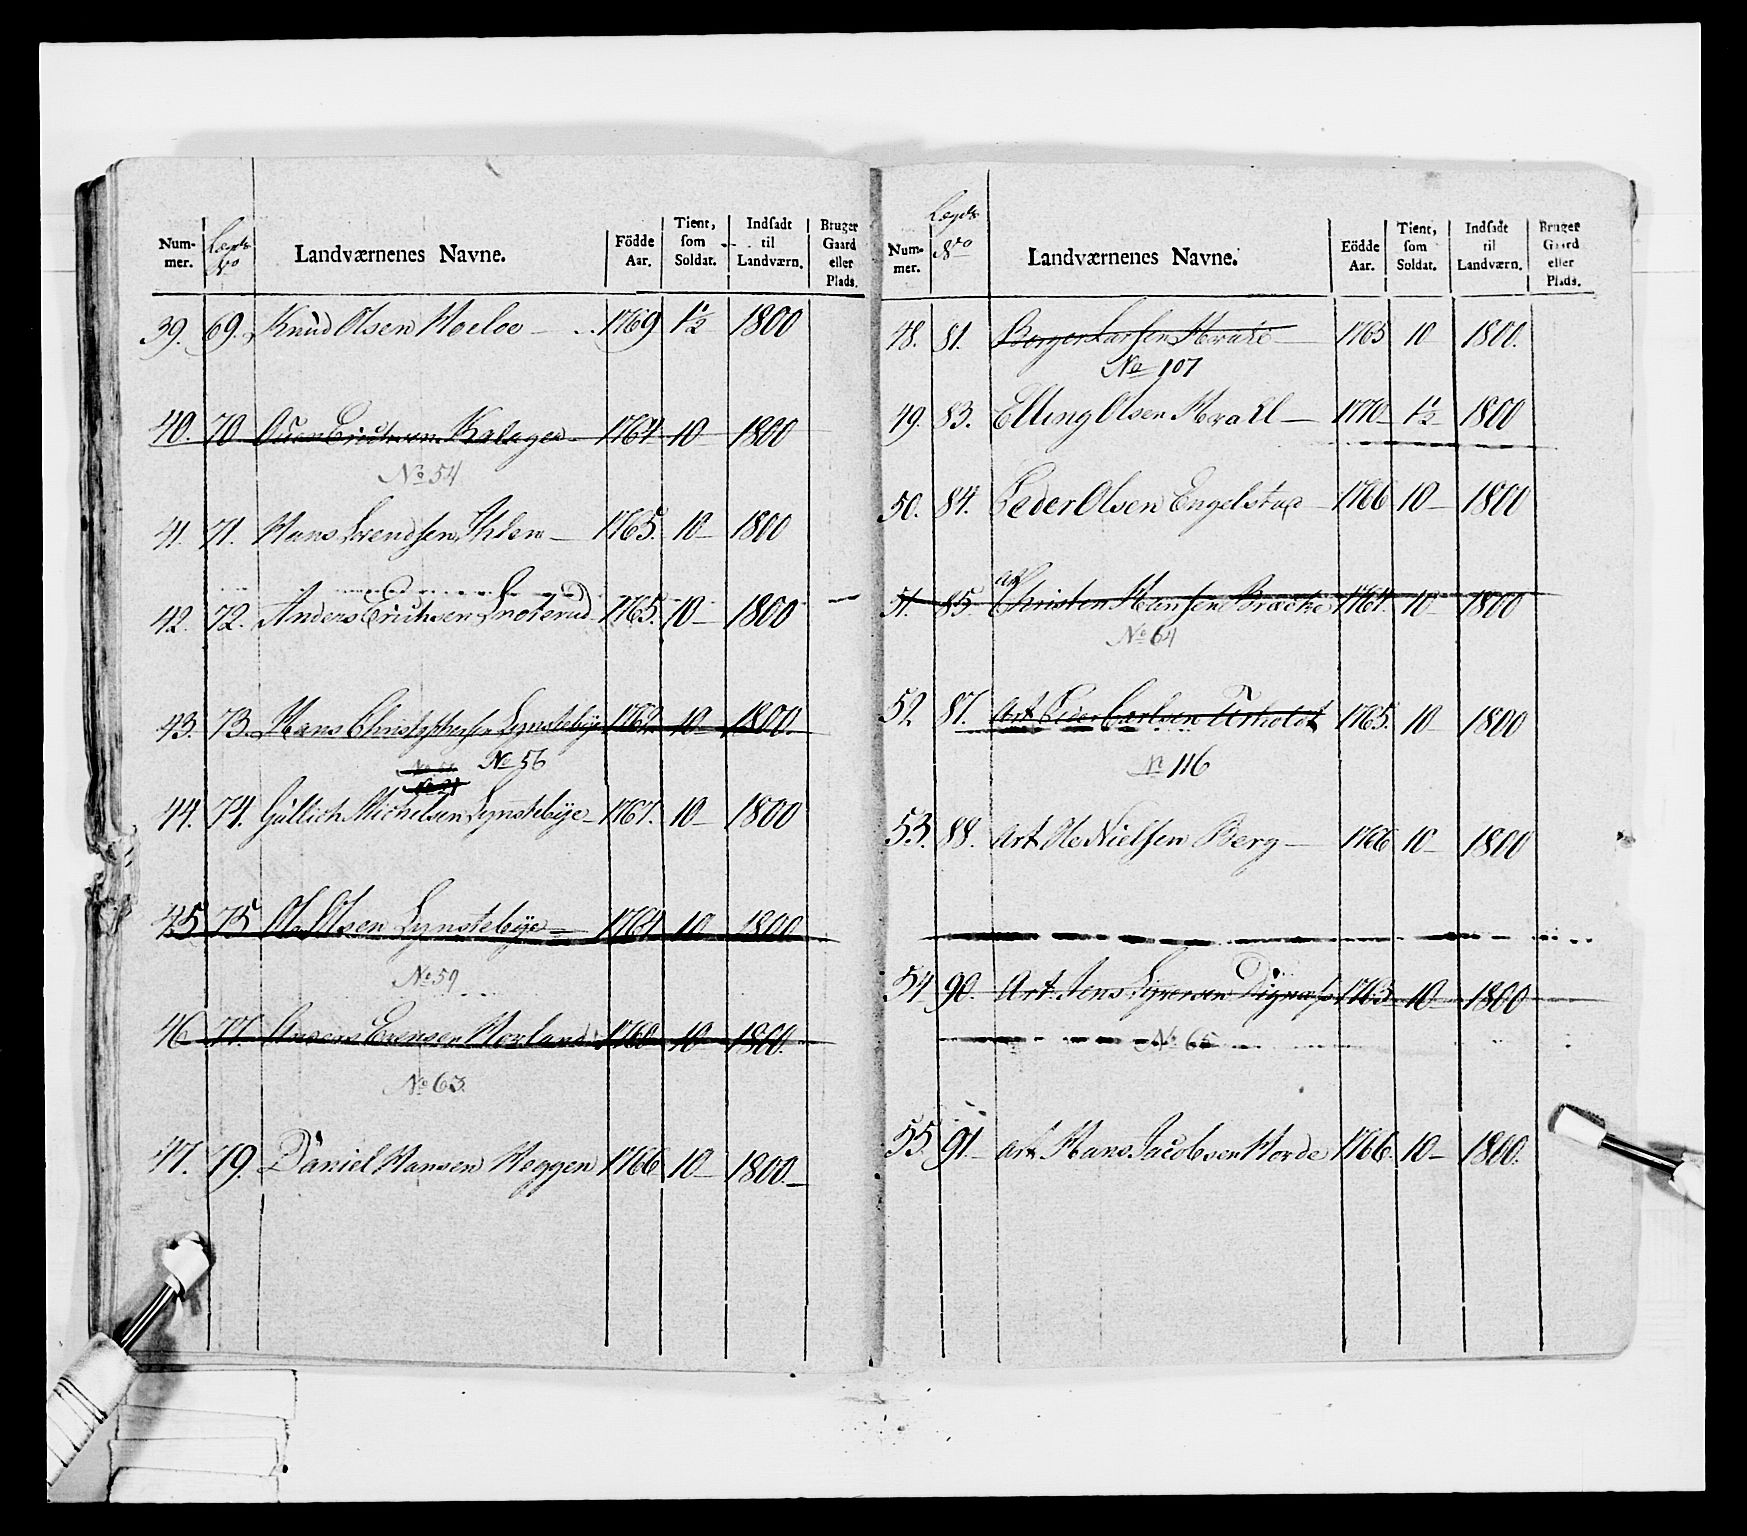 Num-mer. Lægds No Landværnenes Navne. Födde Aar. Tient, som Soldat. Indsadt til Landværn. Bruger Gaard eller Plads.
39. 69. Knud Olsen Moeloe 1769 1½ 1800
40. 70 1764 10 1800
No 54
41. 71. Hans Svendsen Ihlen 1765. 10 1800
42. 72. Anders Erichsen Snoterud 1765. 10 1800
43. 73. Hans Christophersen Lynstebÿe 1762 10 1800.
No 56
44. 74. Gullich Michelsen Lynstebÿe 1767. 10 1800
45 75 Ole Olsen Lynstebÿe 1764 10 1800
No 59
46 77. Evensen Morland 1760 10 1800.
No 63.
47. 79. Daniel Hansen Heggen 1766 10 1800.
Num-mer. Lægds No Landværnenes Navne. Eödde Aar. Tient, som Soldat. Indsadt til Landværn. Bruger Gaard eller Plads.
48. 81. Berger Larsen 1765 10 1800.
No 107
49. 83. Elling Olsen 1770 1½ 1800
50. 84. Peder Olsen Engelstad 1766 10 1800
51. 85. Art Christen Hansen Bracke 1764. 10 1800
No 64
52 87. Art Peder Carlsen 1765. 10 1800
N 116
53. 88. Art Ole Nielsen Berg 1766 10 1800
54 90. Art Jens 1763 10 1800
No 65
55. 91. Art Hans Jacobsen Horde 1766. 10 1800.